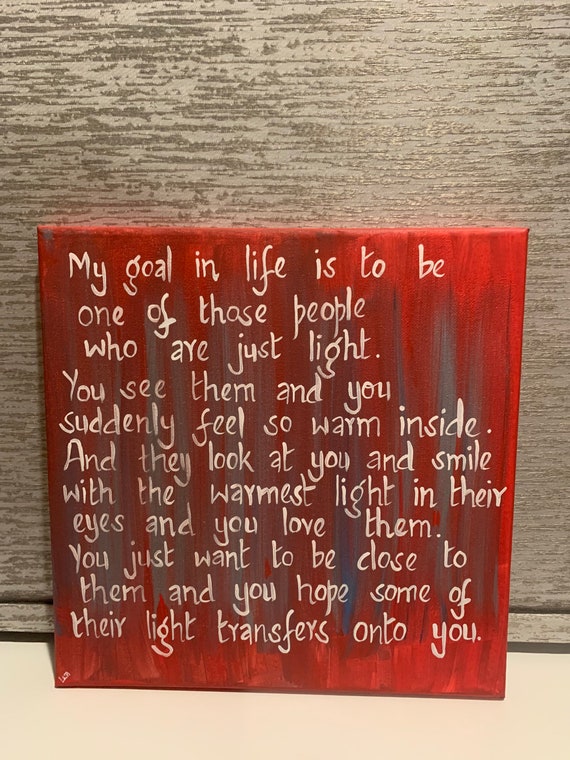 My goal in life is to be
one of those people
who are just light.
You see them and you
suddenly feel so warm inside.
And they look at you and smile
with the warmest light in their
eyes and you love them.
You just want to be close to
them and you hope some of
their light transfers onto you.